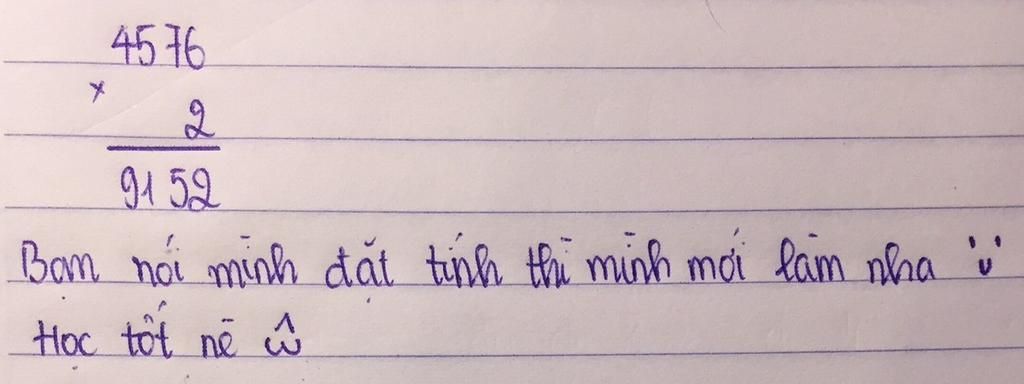 4576
×
2
9152
Bạn nói mình đặt tính thì mình mới làm nha ü
Học tốt nè ω̂